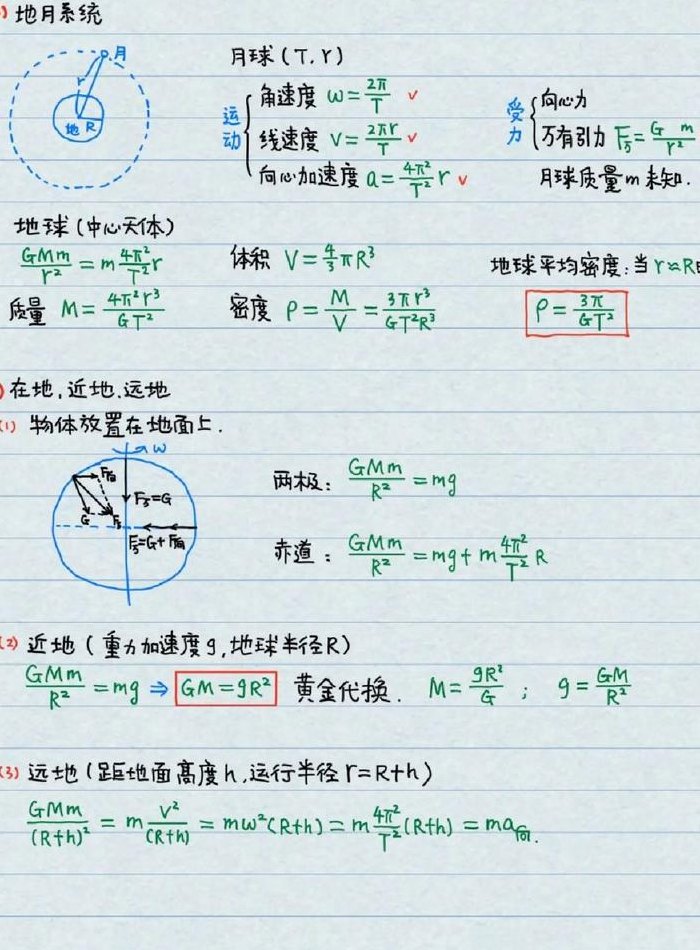 ) 地月系统
月
r
地 R
月球(T, r)
运动
角速度 ω=2π/T ✓
线速度 v=2πr/T ✓
向心加速度 a=4π²/T² r ✓
受力
向心力
万有引力 F万=G m/r²
月球质量m未知.
地球(中心天体)
GMm/r² = m 4π²/T² r
质量 M=4π²r³/GT²
体积 V=4/3 πR³
密度 ρ=M/V=3πr³/GT²R³
地球平均密度:当r≈R
ρ=3π/GT²
) 在地,近地.远地
(1) 物体放置在地面上.
ω
F向
G
F万
F万=G
F万=G+F向
两极: GMm/R² = mg
赤道: GMm/R² = mg+m 4π²/T² R
(2) 近地(重力加速度g,地球半径R)
GMm/R² = mg ⇒ GM=gR² 黄金代换. M=gR²/G ; g=GM/R²
(3) 远地(距地面高度h,运行半径r=R+h)
GMm/(R+h)² = m v²/(R+h) = mω²(R+h) = m 4π²/T² (R+h) = ma向.